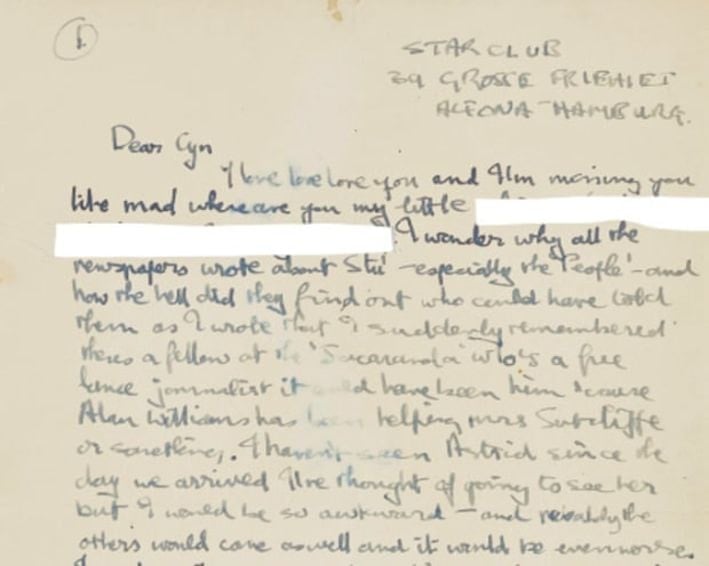 1.
STAR CLUB
39 GROSSE FRIEHIET
ALTONA HAMBURG.
Dear Cyn
I love love love you and I'm missing you
like mad where are you my little
I wonder why all the
newspapers wrote about Stu' - especially the 'People' - and
how the hell did they find out who could have told
them as I wrote that I suddenly remembered
theres a fellow at the 'Jacaranda' who's a free
lance journalist it have been him 'cause
Alan Williams has been helping mrs Sutcliffe
or something. I haven't seen Astrid since the
day we arrived I've thought of going to see her
but I would be so awkward - and probably the
others would come aswell and it would be even worse.